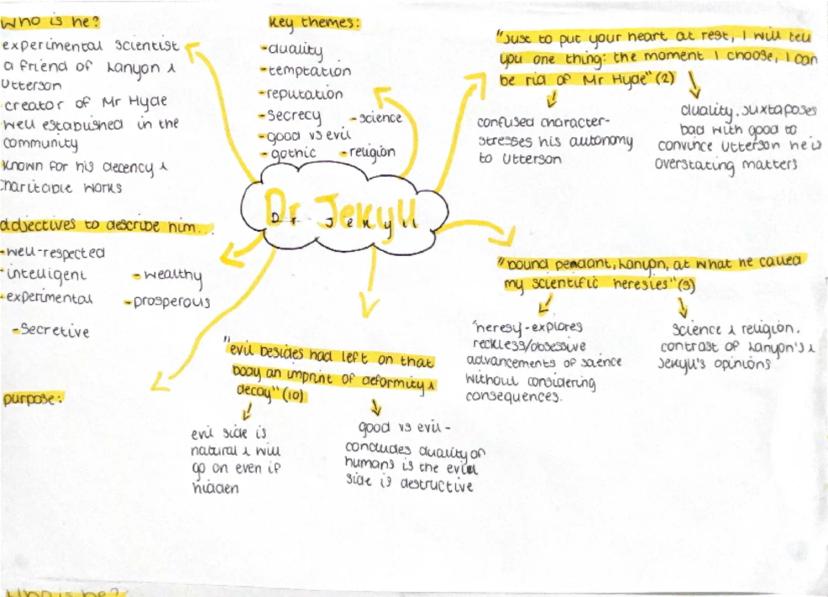 who is he?
experimental scientist
a friend of Lanyon &
Utterson
creator of Mr Hyde
well established in the
community
known for his decency &
charitable works
adjectives to describe him..
-well-respected
-intelligent
-wealthy
-experimental
-prosperous
-secretive
purpose:
key themes:
-duality
-temptation
-reputation
-secrecy
-science
-good vs evil
-gothic
-religion
Dr Jekyll
"Just to put your heart at rest, I will tell
you one thing: the moment I choose, I can
be rid of Mr Hyde"(2)
confused character-
stresses his autonomy
to Utterson
duality. juxtaposes
bad with good to
convince Utterson he is
overstating matters
"bound pendant, Lanyon, at what he called
my scientific heresies"(3)
'heresy-explores
reckless/obsessive
advancements of science
without considering
consequences.
science & religion.
contrast of Lanyon's &
Jekyll's opinions
"evil besides had left on that
body an imprint of deformity &
decay"(10)
evil side is
natural & will
go on even if
hidden
good vs evil-
concludes duality of
humans is the evil
side is destructive
who is he?